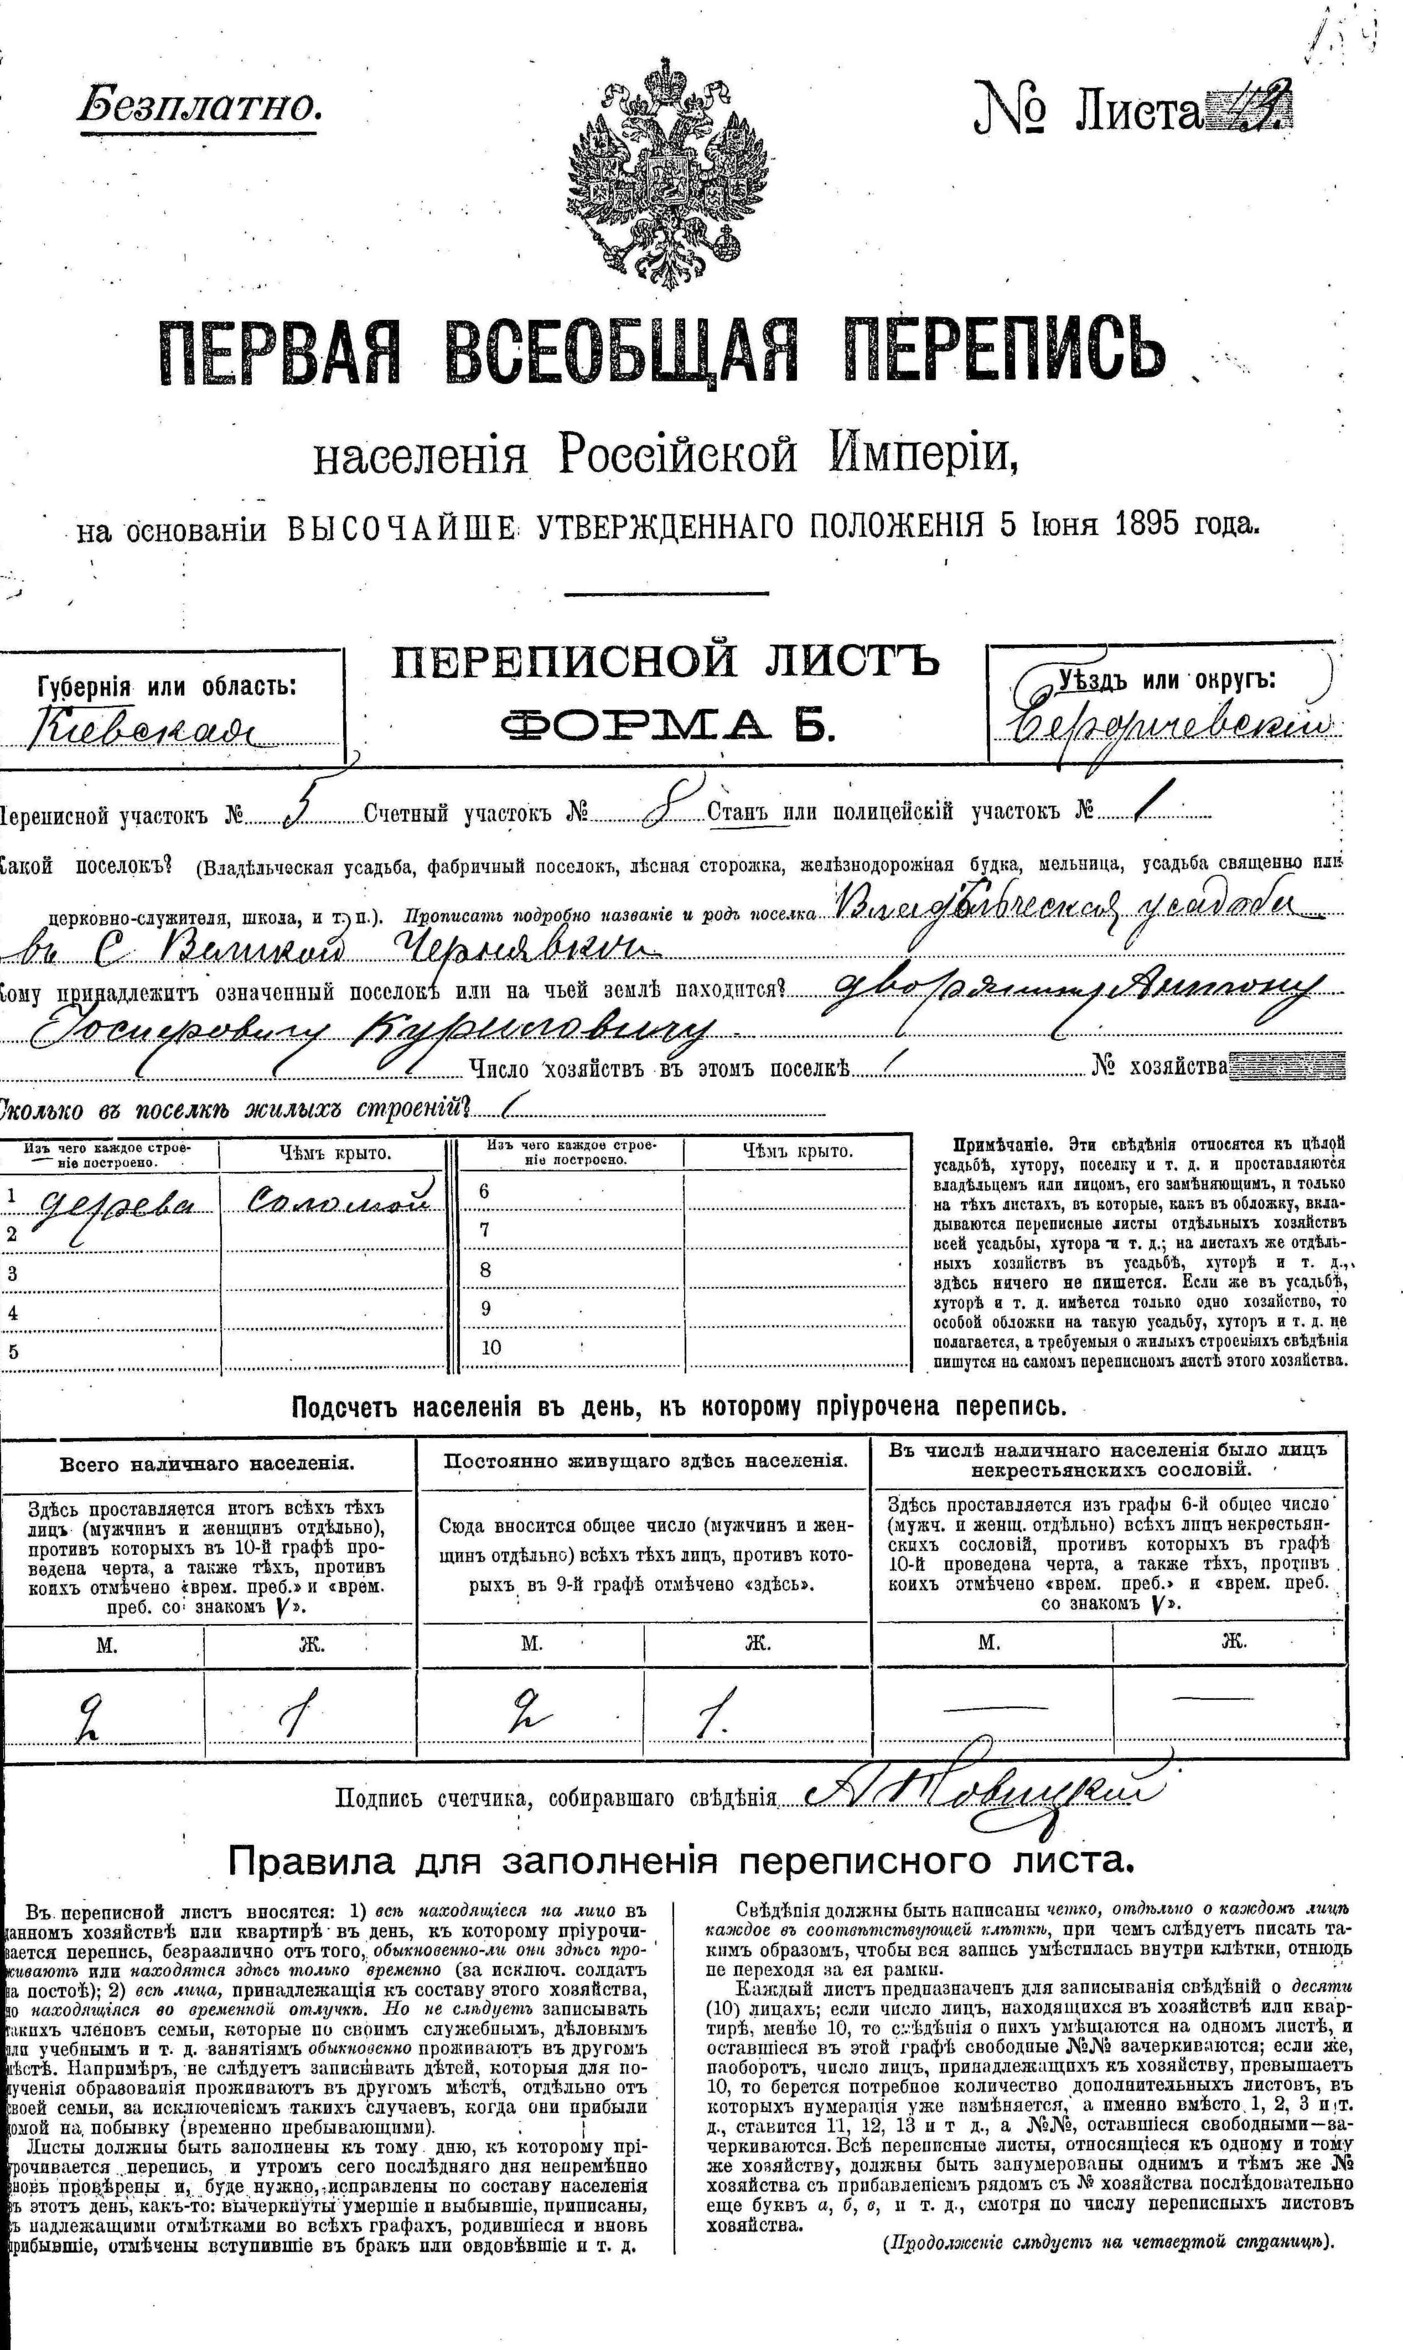 Безплатно.
№ Листа 13.
ПЕРВАЯ ВСЕОБЩАЯ ПЕРЕПИСЬ
населенія Россійской Имперіи,
на основаніи ВЫСОЧАЙШЕ УТВЕРЖДЕННАГО ПОЛОЖЕНІЯ 5 Іюня 1895 года.
Губернія или область:
Кіевская
ПЕРЕПИСНОЙ ЛИСТЪ
ФОРМА Б.
Уѣздъ или округъ:
Бердичевскій
Переписной участокъ № 5 Счетный участокъ № 8 Станъ или полицейскій участокъ № 1
Какой поселокъ? (Владѣльческая усадьба, фабричный поселокъ, лѣсная сторожка, желѣзнодорожная будка, мельница, усадьба священно или
церковно-служителя, школа, и т. п.). Прописать подробно названіе и родъ поселка Владѣльческая усадьба
въ С Великой Чернявкой
Кому принадлежитъ означенный поселокъ или на чьей землѣ находится? дворянину Антону
Куриловичу
Число хозяйствъ въ этомъ поселкѣ 1 № хозяйства
Сколько въ поселкѣ жилыхъ строеній? 1
Изъ чего каждое строе-
ніе построено.
Чѣмъ крыто.
Изъ чего каждое строе-
ніе построено.
Чѣмъ крыто.
1 дерева соломой 6
2 7
3 8
4 9
5 10
Примѣчаніе. Эти свѣдѣнія относятся къ цѣлой
усадьбѣ, хутору, поселку и т. д. и проставляются
владѣльцемъ или лицомъ, его замѣняющимъ, и только
на тѣхъ листахъ, въ которые, какъ въ обложку, вкла-
дываются переписные листы отдѣльныхъ хозяйствъ
всей усадьбы, хутора и т. д.; на листахъ же отдѣль-
ныхъ хозяйствъ въ усадьбѣ, хуторѣ и т. д.,
здѣсь ничего не пишется. Если же въ усадьбѣ,
хуторѣ и т. д. имѣется только одно хозяйство, то
особой обложки на такую усадьбу, хуторъ и т. д. не
полагается, а требуемыя о жилыхъ строеніяхъ свѣдѣнія
пишутся на самомъ переписномъ листѣ этого хозяйства.
Подсчетъ населенія въ день, къ которому пріурочена перепись.
Всего наличнаго населенія.
Здѣсь проставляется итогъ всѣхъ тѣхъ
лицъ (мужчинъ и женщинъ отдѣльно),
противъ которыхъ въ 10-й графѣ про-
ведена черта, а также тѣхъ, противъ
коихъ отмѣчено «врем. преб.» и «врем.
преб. со знакомъ V».
М. Ж.
2 1
Постоянно живущаго здѣсь населенія.
Сюда вносится общее число (мужчинъ и жен-
щинъ отдѣльно) всѣхъ тѣхъ лицъ, противъ кото-
рыхъ въ 9-й графѣ отмѣчено «здѣсь».
М. Ж.
2 1.
Въ числѣ наличнаго населенія было лицъ
некрестьянскихъ сословій.
Здѣсь проставляется изъ графы 6-й общее число
(мужч. и женщ. отдѣльно) всѣхъ лицъ некрестьян-
скихъ сословій, противъ которыхъ въ графѣ
10-й проведена черта, а также тѣхъ, противъ
коихъ отмѣчено «врем. преб.» и «врем. преб.
со знакомъ V».
М. Ж.
— —
Подпись счетчика, собиравшаго свѣдѣнія
Правила для заполненія переписного листа.
Въ переписной листъ вносятся: 1) всѣ находящіеся на лицо въ
данномъ хозяйствѣ или квартирѣ въ день, къ которому пріурочи-
вается перепись, безразлично отъ того, обыкновенно-ли они здѣсь про-
живаютъ или находятся здѣсь только временно (за исключ. солдатъ
на постоѣ); 2) всѣ лица, принадлежащія къ составу этого хозяйства,
но находящіяся во временной отлучкѣ. Но не слѣдуетъ записывать
такихъ членовъ семьи, которые по своимъ служебнымъ, дѣловымъ
или учебнымъ и т. д. занятіямъ обыкновенно проживаютъ въ другомъ
мѣстѣ. Напримѣръ, не слѣдуетъ записывать дѣтей, которыя для по-
лученія образованія проживаютъ въ другомъ мѣстѣ, отдѣльно отъ
своей семьи, за исключеніемъ такихъ случаевъ, когда они прибыли
домой на побывку (временно пребывающими).
Листы должны быть заполнены къ тому дню, къ которому прі-
урочивается перепись, и утромъ сего послѣдняго дня непремѣнно
вновь провѣрены и, буде нужно, исправлены по составу населенія
въ этотъ день, какъ-то: вычеркнуты умершіе и выбывшіе, приписаны,
съ надлежащими отмѣтками во всѣхъ графахъ, родившіеся и вновь
прибывшіе, отмѣчены вступившіе въ бракъ или овдовѣвшіе и т. д.
Свѣдѣнія должны быть написаны четко, отдѣльно о каждомъ лицѣ
каждое въ соотвѣтствующей клѣткѣ, при чемъ слѣдуетъ писать та-
кимъ образомъ, чтобы вся запись умѣстилась внутри клѣтки, отнюдь
не переходя за ея рамки.
Каждый листъ предназначенъ для записыванія свѣдѣній о десяти
(10) лицахъ; если число лицъ, находящихся въ хозяйствѣ или квар-
тирѣ, менѣе 10, то свѣдѣнія о нихъ умѣщаются на одномъ листѣ, и
оставшіеся въ этой графѣ свободные №№ зачеркиваются; если же,
наоборотъ, число лицъ, принадлежащихъ къ хозяйству, превышаетъ
10, то берется потребное количество дополнительныхъ листовъ, въ
которыхъ нумерація уже измѣняется, а именно вмѣсто 1, 2, 3 и т.
д., ставится 11, 12, 13 и т д., а №№, оставшіеся свободными—за-
черкиваются. Всѣ переписные листы, относящіеся къ одному и тому
же хозяйству, должны быть занумерованы однимъ и тѣмъ же №
хозяйства съ прибавленіемъ рядомъ съ № хозяйства послѣдовательно
еще буквъ а, б, в, и т. д., смотря по числу переписныхъ листовъ
хозяйства.
(Продолженіе слѣдуетъ на четвертой страницѣ).